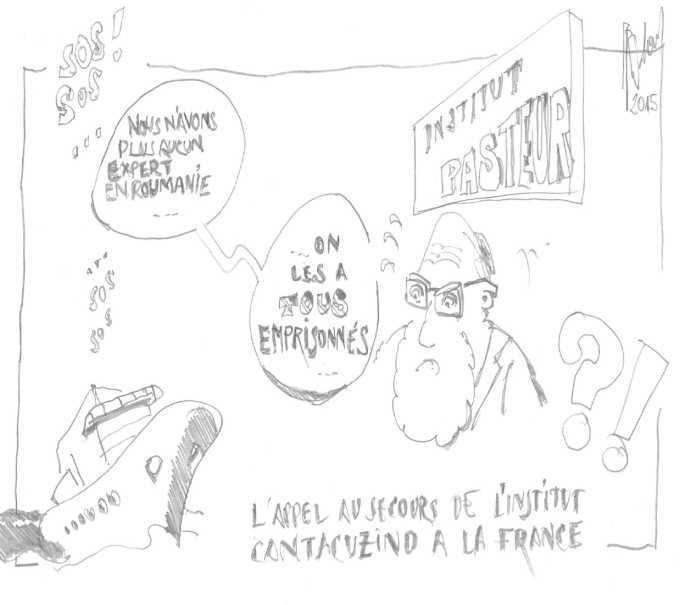 SOS!
SOS
NOUS N'AVONS
PLUS AUCUN
EXPERT
EN ROUMANIE
...ON
LES A
TOUS
EMPRISONNÉS
INSTITUT
PASTEUR
2015
SOS
SOS
?!
L'APPEL AU SECOURS DE L'INSTITUT
CANTACUZINO A LA FRANCE